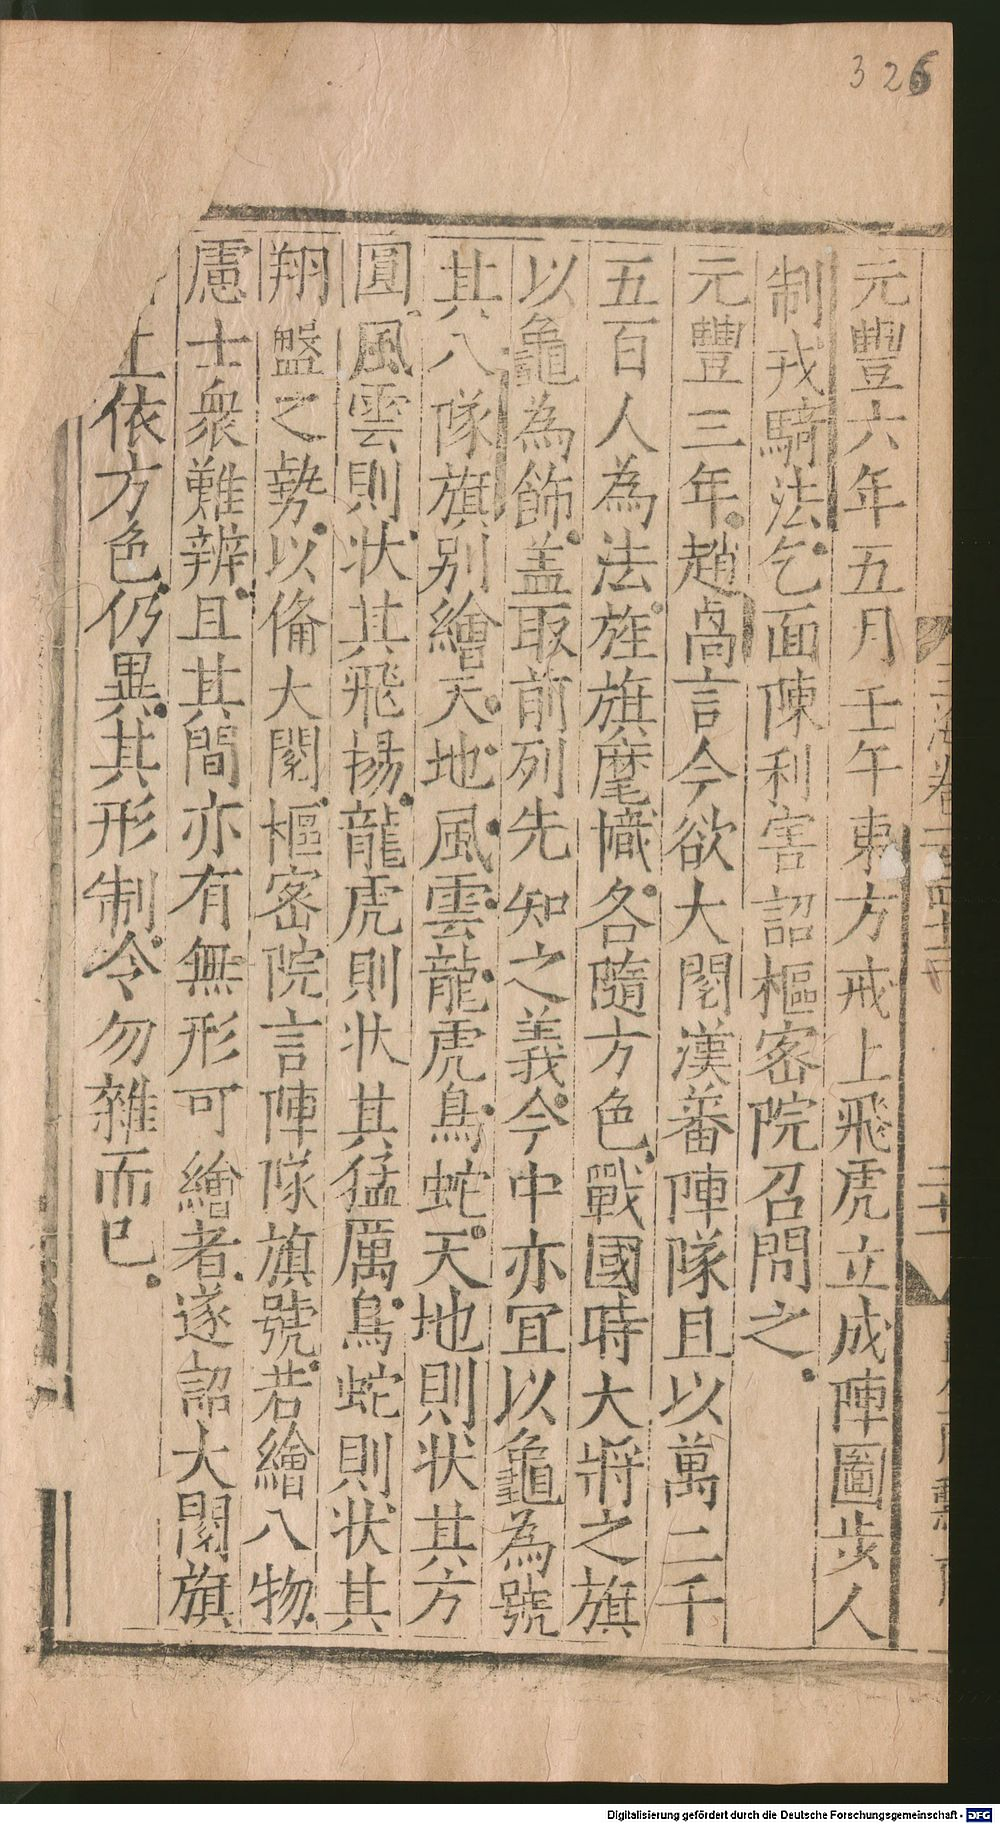 326
元豐六年五月壬午東方戒上飛虎立成陣圖步人
制戎騎法乞面陳利害詔樞密院召問之
元豐三年趙卨言今欲大閱漢蕃陣隊且以萬二千
五百人為法旌旗麾幟各隨方色戰國時大將之旗
以龜為飾盖取前列先知之義今中亦冝以龜為號
其八隊旗別繪天地風雲龍虎鳥蛇天地則状其方
圓風雲則状其飛揚龍虎則状其猛厲鳥蛇則状其
翔盤之勢以俻大閱樞密院言陣隊旗號若繪八物
慮士衆難辨且其間亦有無形可繪者遂詔大閱旗
上依方色仍異其形制令勿雜而已
Digitalisierung gefördert durch die Deutsche Forschungsgemeinschaft - DFG